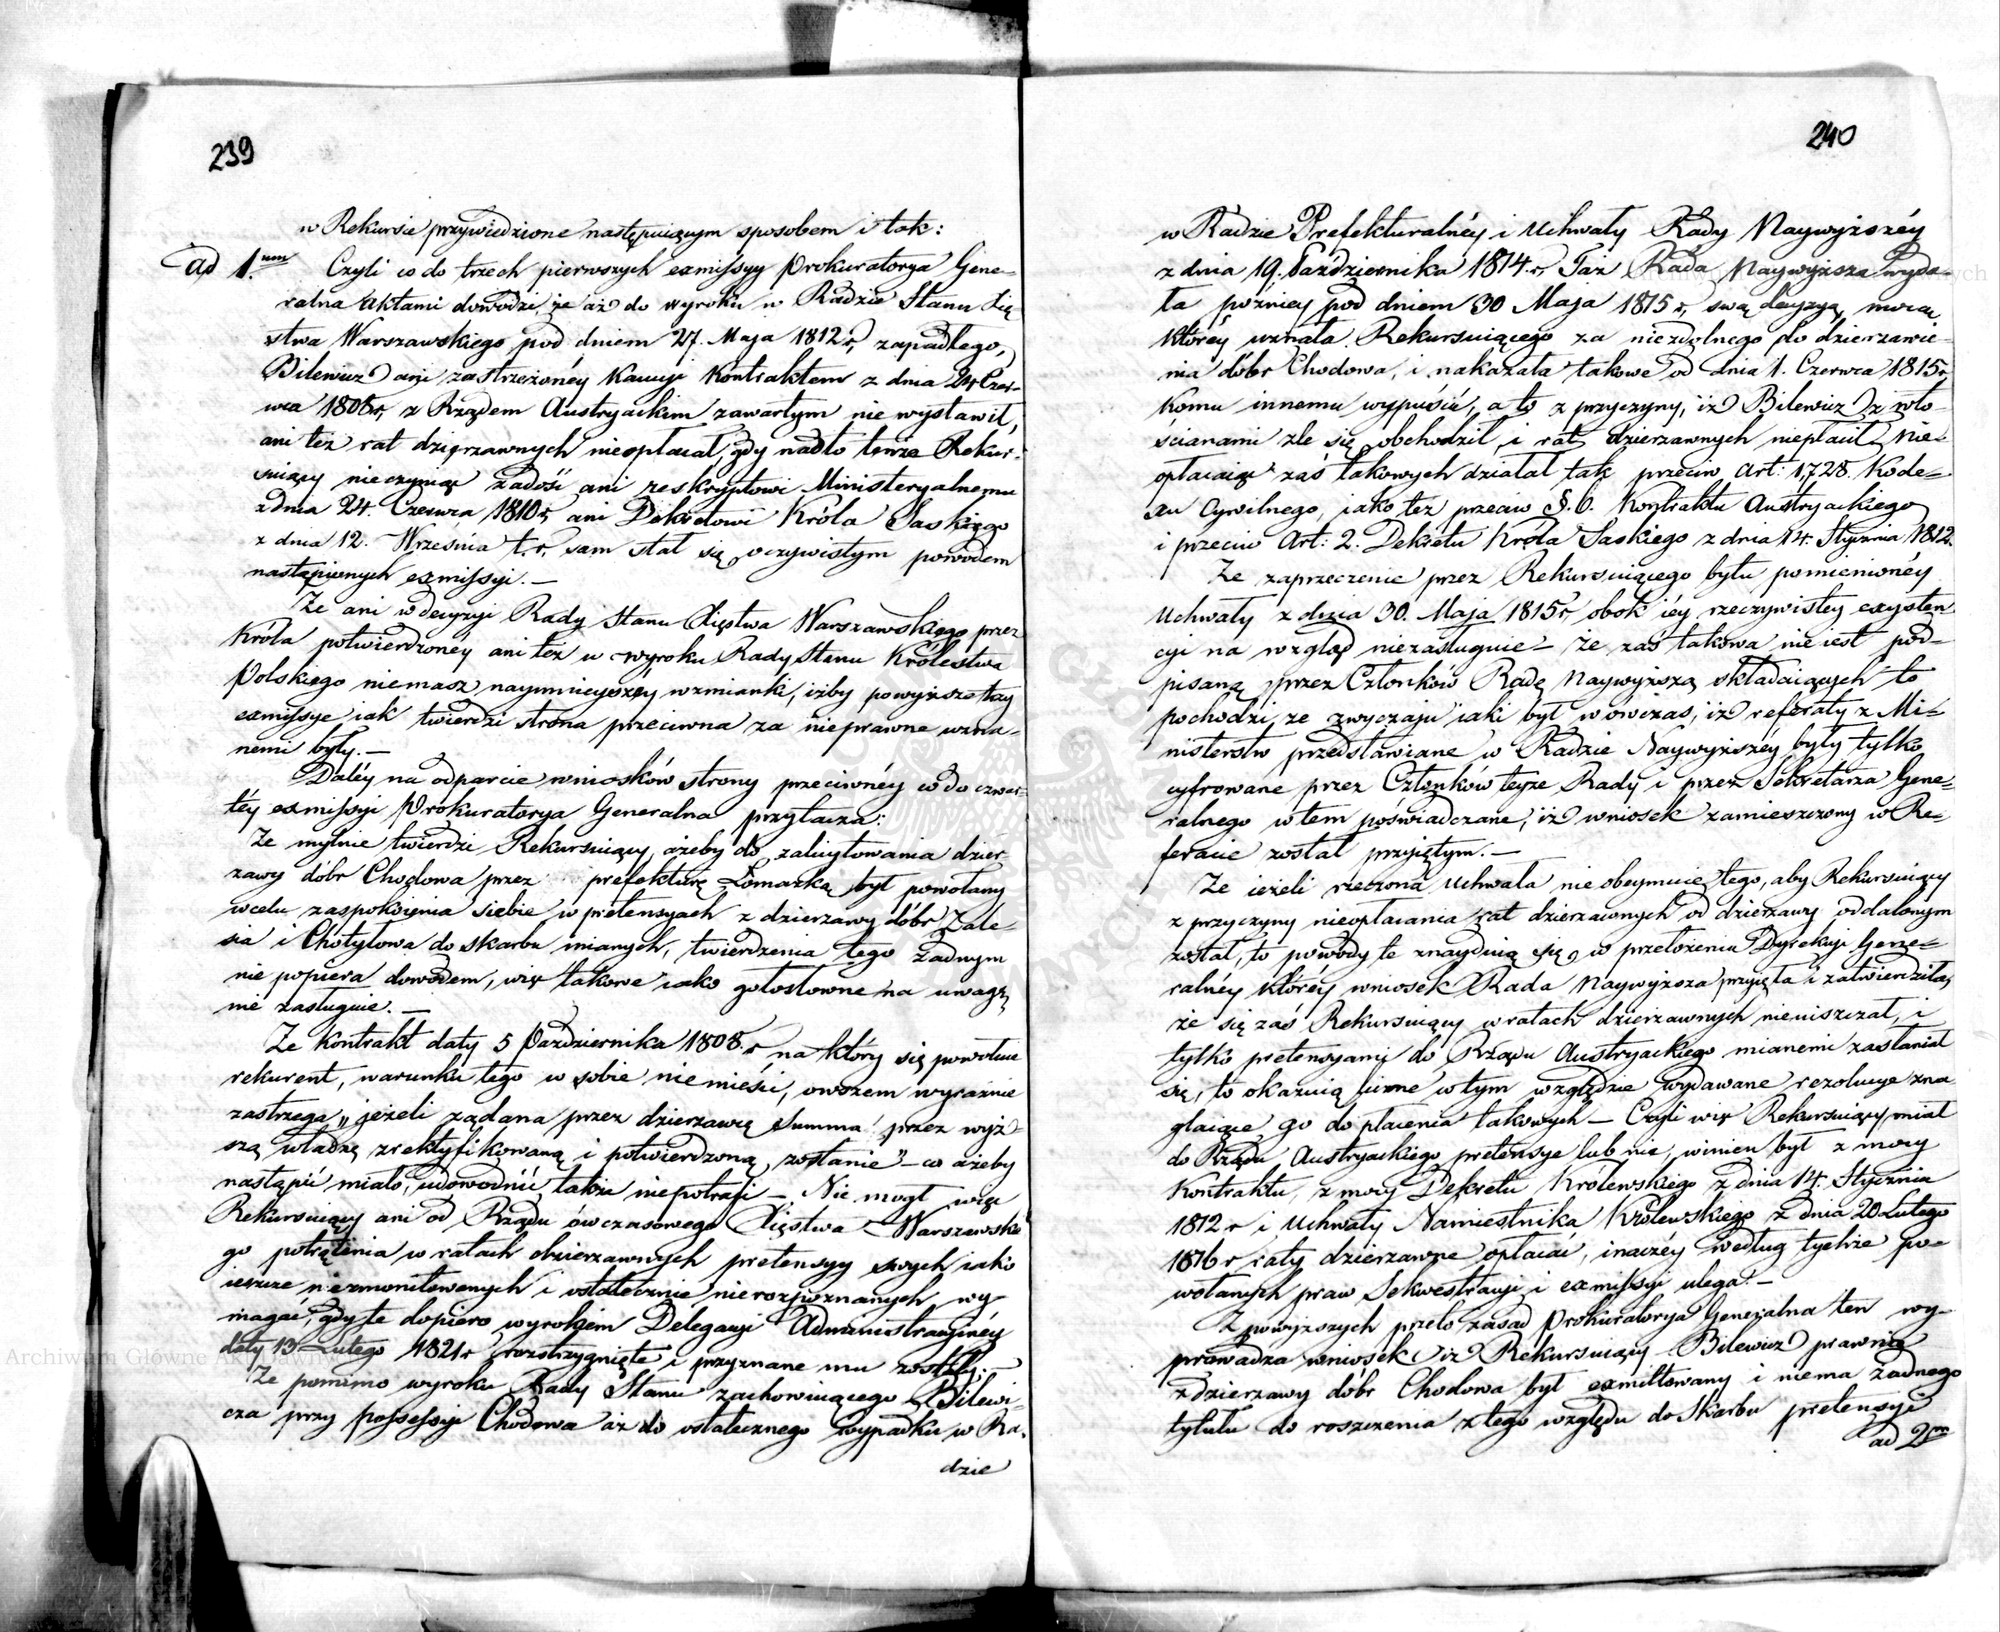 239
w Rekursie przywiedzione następuiącym sposobem i tak:
ad 1mum Czyli co do trzech pierwszych exmissyy Prokuratorya Gene-
ralna aktami dowodzi, że aż do wyroku w Radzie Stanu Xię
stwa Warszawskiego pod dniem 27. Maja 1812 r, zapadłego,
Bilewicz ani zastrzeżonéy Kaucyi Kontraktem z dnia 24 Czer-
wca 1808 r, z Rządem Austryackim zawartym nie wystawił,
ani też rat dzierzawnych nieopłacał, gdy nadto tenże Rekur-
suiący nieczyniąc zadość ani reskryptowi Ministeryalnemu
z dnia 24. Czerwca 1810 r, ani Dekretowi Króla Saskiego
z dnia 12. Września t. r, sam stał się oczywistym powodem
nastąpionych exmissyi. —
Że ani w decyzyi Rady Stanu Xięstwa Warszawskiego przez
Króla potwierdzonéy ani też w wyroku Rady Stanu Królestwa
Polskiego niemasz naymnieyszéy wzmianki, iżby powyższe trzy
exmissye iak twierdzi strona przeciwna za nieprawne uzna-
nemi były. —
Daléy na odparcie wniosków strony przeciwnéy co do czwar-
téy exmissyi Prokuratorya Generalna przytacza:
Że mylnie twierdzi Rekursuiący, ażeby do zalicytowania dzier-
zawy dóbr Chodowa przez prefekturę Łomazką był powołany
w celu zaspokoienia siebie w pretensyach z dzierzawy dóbr Zale-
sia i Chotyłowa do skarbu mianych, twierdzenia tego żadnym
nie popiera dowodem, więc takowe iako gołosłowne na uwagę
nie zasługuie. —
Że Kontrakt daty 5 Października 1808. r na który się powołuie
rekurent, warunku tego w sobie niemieści, owszem wyraźnie
zastrzega „jeżeli żądana przez dzierzawcę Summa przez wyż-
szą władzę zrektyfikowaną i potwierdzoną zostanie" — co ażeby
nastąpić miało, udowodnić także niepotrafi — Nie mogł więc
Rekursuiący ani od Rządu ówczasowego Xięstwa Warszawskie
go potrącenia w ratach dzierzawnych pretensyy swych iako
ieszcze niezmonitowanych i ostatecznie nierozpoznanych wy
magać, gdy te dopiero wyrokiem Delegacyi Administracyinéy
daty 13 Lutego 1821 r rozstrzygnięte i przyznane mu zostały. —
Że pomimo wyroku Rady Stanu zachowuiącego Bilewi-
cza przy possessyi Chodowa aż do ostatecznego wypadku w Ra-
dzie
240
w Radzie Prefekturalnéy i Uchwały Rady Naywyższéy
z dnia 19. Października 1814. r, Taż Rada Naywyższa wyda-
ła późniey pod dniem 30 Maja 1815 r, swą decyzyą, mocą
któréy uznała Rekursuiącego za niezdolnego do dzierzawie-
nia dóbr Chodowa, i nakazała takowe od dnia 1. Czerwca 1815 r
Komu innemu wypuścić, a to z przyczyny, iż Bilewicz z wło-
ścianami źle się obchodził, i rat dzierzawnych niepłacił, nie-
opłacaiąc zaś takowych działał tak przeciw Art: 1,728. Kode-
xu Cywilnego, iako też przeciw §. 6. Kontraktu Austryackiego
i przeciw Art: 2. Dekretu Króla Saskiego z dnia 14. Stycznia 1812.
Że zaprzeczenie przez Rekursuiącego bytu pomienionéy
Uchwały z dnia 30. Maja 1815 r, obok iéy rzeczywistey exysten
cyi na wzgląd niezasługuie — że zaś takowa nie iest pod-
pisaną przez Członków Radę Naywyższą składaiących to
pochodzi, ze zwyczaju iaki był wówczas, iż referaty z Mi-
nisterstw przedstawiane w Radzie Naywyższéy były tylko
cyfrowane przez Członków teyże Rady i przez Sekretarza Gene-
ralnego w tem poświadczane, iż wniosek zamieszczony w Re-
feracie został przyiętym. —
Że ieżeli rzeczona Uchwała nie obeymuie tego, aby Rekursuiący
z przyczyny nieopłacania rat dzierzawnych od dzierzawy oddalonym
został, to powody te znayduią się w przełożeniu Dyrekcyi Gene-
ralnéy któréy wniosek Rada Naywyższa przyięła i zatwierdziła,
że się zaś Rekursuiący w ratach dzierzawnych nieuiszczał, i
tylko pretensyami do Rządu Austryackiego mianemi zasłaniał
się, to okazuią liczne w tym względzie wydawane rezolucye zna
glaiące go do płacenia takowych — Czyli więc Rekursuiący miał
do Rządu Austryackiego pretensye lub nie, winien był z mocy
Kontraktu, z mocy Dekretu Królewskiego z dnia 14. Stycznia
1812 r i Uchwały Namiestnika Królewskiego z dnia 20 Lutego
1816 r raty dzierzawne opłacać, inaczéy według tychże po-
wołanych praw Sekwestracyi i exmissyi ulega. —
Z powyższych przeto zasad Prokuratorya Generalna ten wy-
prowadza wniosek iż Rekursuiący Bilewicz prawnie
z dzierzawy dóbr Chodowa był exmittowany i niema żadnego
tytułu do roszczenia z tego względu do Skarbu pretensyi
ad 2um